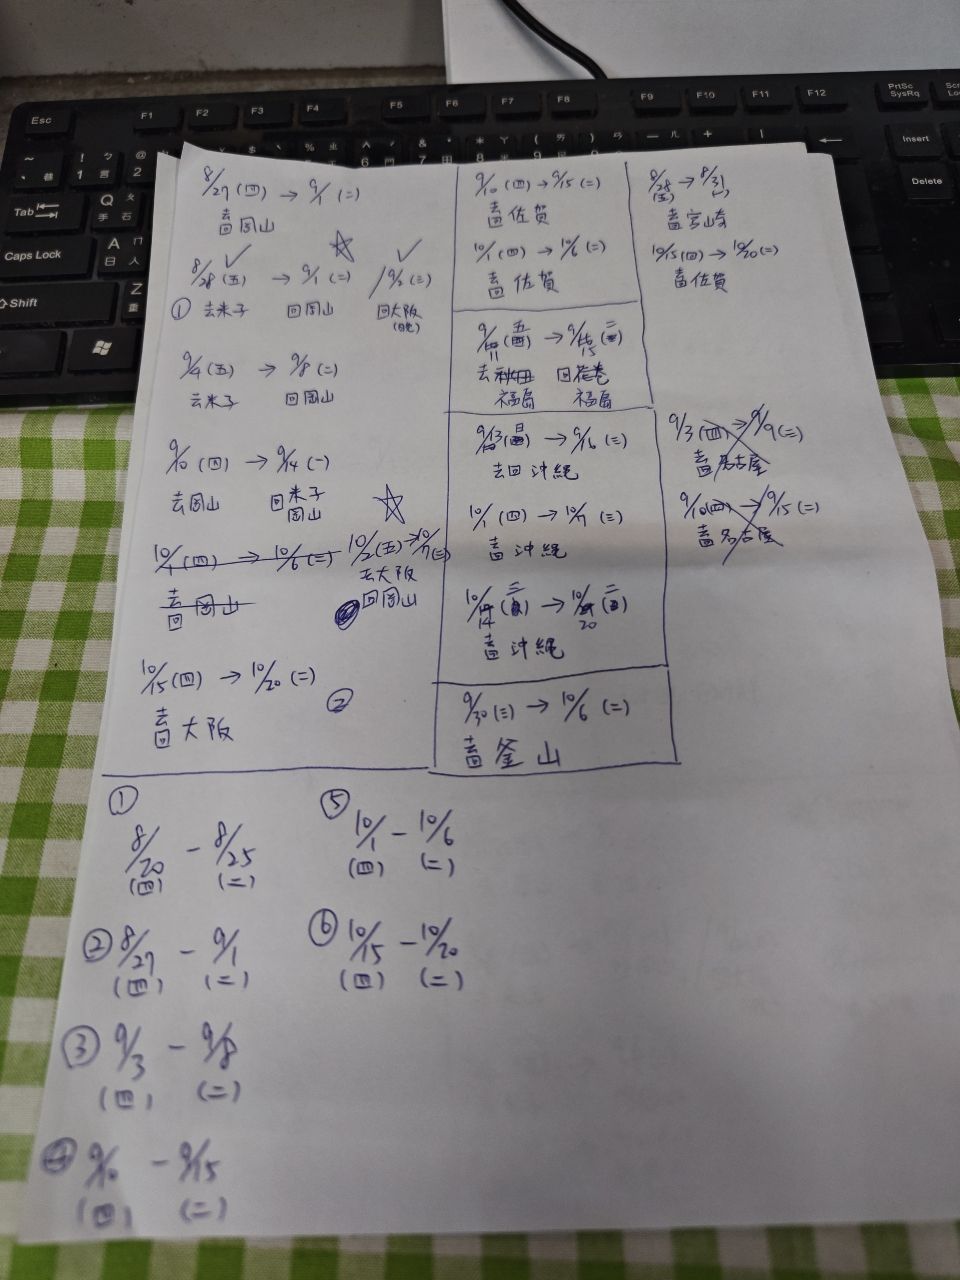 Esc F1 F2 F3 F4 F5 F6 F7 F8 F9 F10 F11 F12 PrtSc SysRq
Insert
Delete
Tab Q
Caps Lock A
Shift Z
8/27 (四) → 9/1 (二)
去回 岡山
8/28 (五) → 9/1 (二) / 9/2 (三)
① 去米子 回岡山 回大阪
(晚)
9/4 (五) → 9/8 (二)
去米子 回岡山
9/10 (四) → 9/14 (一)
去岡山 回米子
岡山
10/1 (四) → 10/6 (二) 10/2 (五) → 10/7 (三)
去回 岡山 去大阪
回岡山
10/15 (四) → 10/20 (二)
②
去回 大阪
9/10 (四) → 9/15 (二)
去回 佐賀
10/1 (四) → 10/6 (二)
去回 佐賀
9/11 (五) → 9/15 (二)
去 回
福島 福島
9/13 (日) → 9/16 (三)
去回 沖繩
10/1 (四) → 10/7 (三)
去回 沖繩
10/14 (三) → 10/20 (二)
去回 沖繩
9/30 (三) → 10/6 (二)
去回 釜山
8/28 (五) → 8/31 (一)
去回 宮崎
10/15 (四) → 10/20 (二)
去回 佐賀
9/3 (四) → 9/9 (三)
去回 名古屋
9/10 (四) → 9/15 (二)
去回 名古屋
①
8/20 - 8/25
(四) (二)
② 8/27 - 9/1
(四) (二)
③ 9/3 - 9/8
(四) (二)
④ 9/10 - 9/15
(四) (二)
⑤ 10/1 - 10/6
(四) (二)
⑥ 10/15 - 10/20
(四) (二)